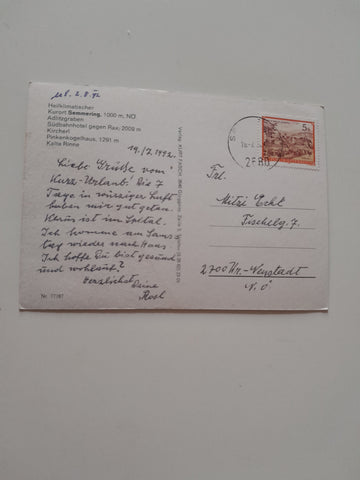 erh. 2.8.92
Heilklimatischer
Kurort Semmering, 1000 m, NÖ
Adlitzgraben
Südbahnhotel gegen Rax, 2009 m
Kircherl
Pinkenkogelhaus, 1291 m
Kalte Rinne
19./7.1992.
Liebe Grüße vom
Kurz-Urlaub! Die 7
Tage in würziger Luft
haben mir gut getan.
Klaus ist im Spital.
Ich komme am Sams-
tag wieder nach Haus.
Ich hoffe Du bist gesund
und wohlauf?
Herzlichst
Deine
Rosl
Nr. 17/367
Verlag KURT
5 S
2680
Frl.
Mitzi Eckl
Fischelg. 7.
2700 Wr.-Neustadt
N.Ö.